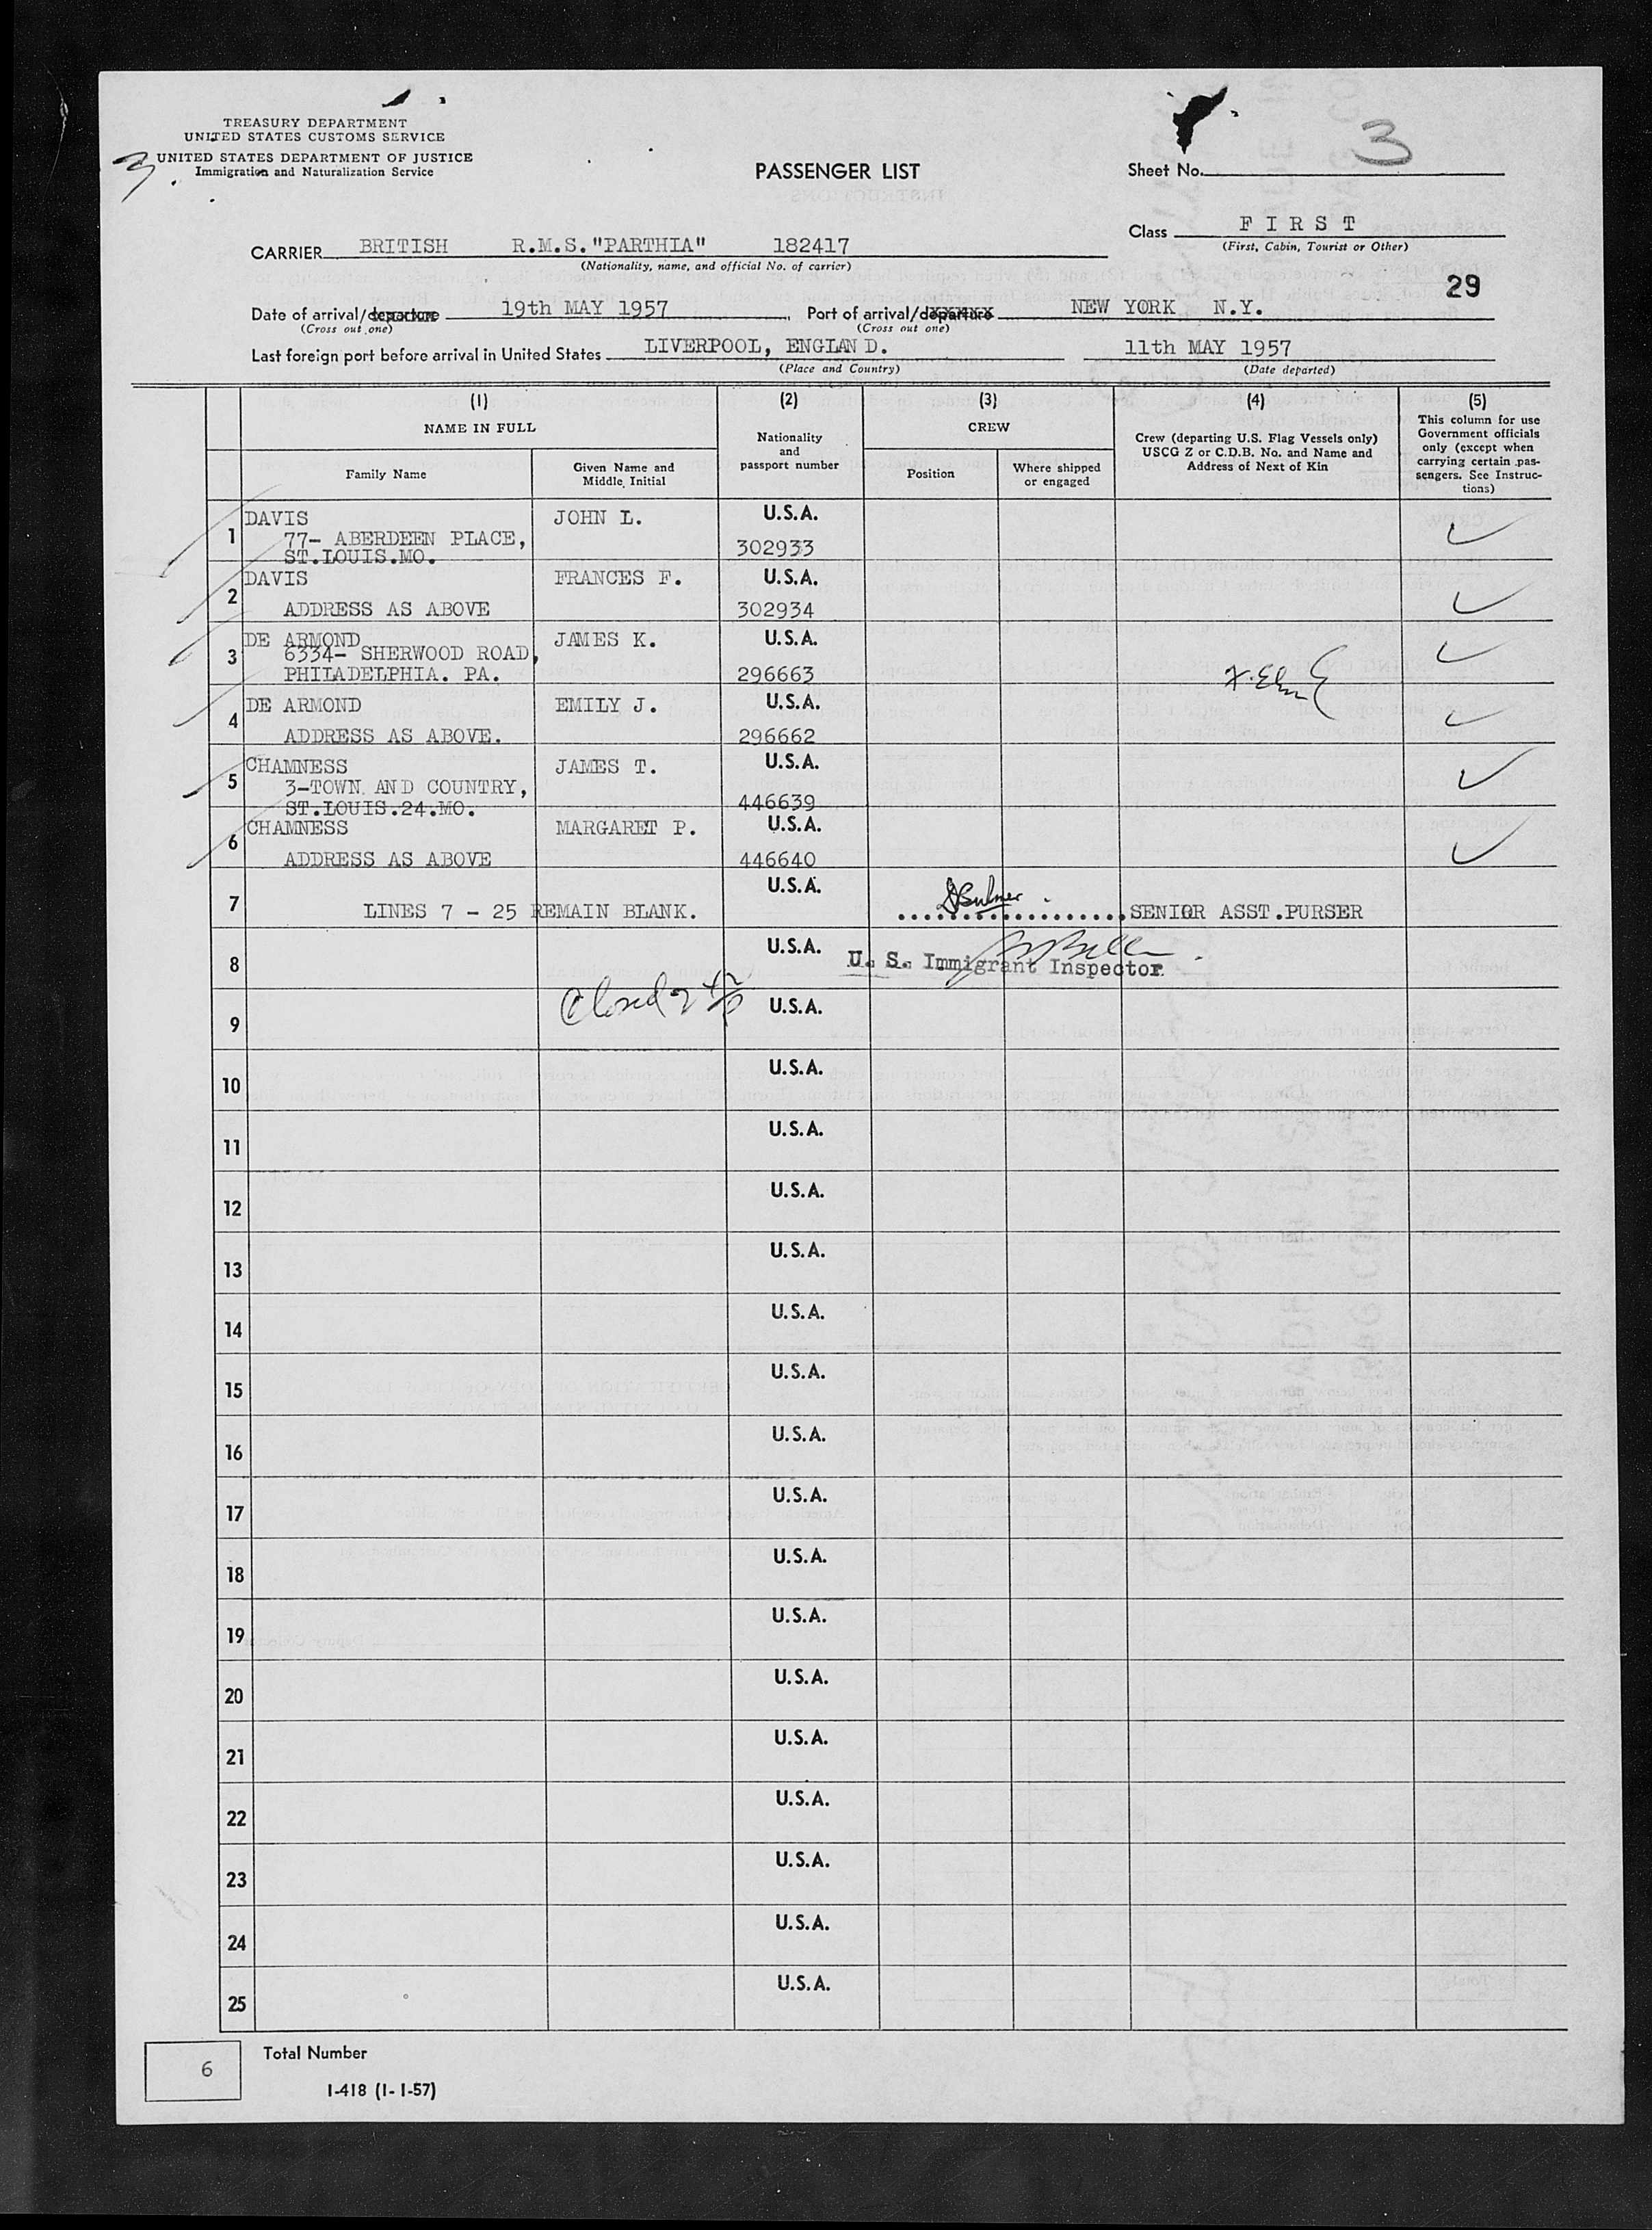 TREASURY DEPARTMENT
UNITED STATES CUSTOMS SERVICE
UNITED STATES DEPARTMENT OF JUSTICE
Immigration and Naturalization Service
3
PASSENGER LIST
Sheet No. 3
Class FIRST
(First, Cabin, Tourist or Other)
CARRIER BRITISH R.M.S."PARTHIA" 182417
(Nationality, name, and official No. of carrier)
29
Date of arrival/departure 19th MAY 1957, Port of arrival/departure NEW YORK N.Y.
(Cross out one) (Cross out one)
Last foreign port before arrival in United States LIVERPOOL, ENGLAND. 11th MAY 1957
(Place and Country) (Date departed)
(1) (2) (3) (4) (5)
NAME IN FULL
Family Name
Given Name and
Middle Initial
Nationality
and
passport number
CREW
Position
Where shipped
or engaged
Crew (departing U.S. Flag Vessels only)
USCG Z or C.D.B. No. and Name and
Address of Next of Kin
This column for use
Government officials
only (except when
carrying certain pas-
sengers. See Instruc-
tions)
1 DAVIS JOHN L. U.S.A.
77- ABERDEEN PLACE, 302933
ST.LOUIS.MO.
2 DAVIS FRANCES F. U.S.A.
ADDRESS AS ABOVE 302934
3 DE ARMOND JAMES K. U.S.A.
6334- SHERWOOD ROAD,
PHILADELPHIA. PA. 296663
4 DE ARMOND EMILY J. U.S.A.
ADDRESS AS ABOVE. 296662
5 CHAMNESS JAMES T. U.S.A.
3-TOWN AND COUNTRY,
ST.LOUIS.24.MO. 446639
6 CHAMNESS MARGARET P. U.S.A.
ADDRESS AS ABOVE 446640
7 U.S.A.
LINES 7 - 25 REMAIN BLANK. ..................SENIOR ASST.PURSER
8 U.S.A. U. S. Immigrant Inspector
Closed
9 U.S.A.
10 U.S.A.
11 U.S.A.
12 U.S.A.
13 U.S.A.
14 U.S.A.
15 U.S.A.
16 U.S.A.
17 U.S.A.
18 U.S.A.
19 U.S.A.
20 U.S.A.
21 U.S.A.
22 U.S.A.
23 U.S.A.
24 U.S.A.
25 U.S.A.
6 Total Number
I-418 (1-1-57)